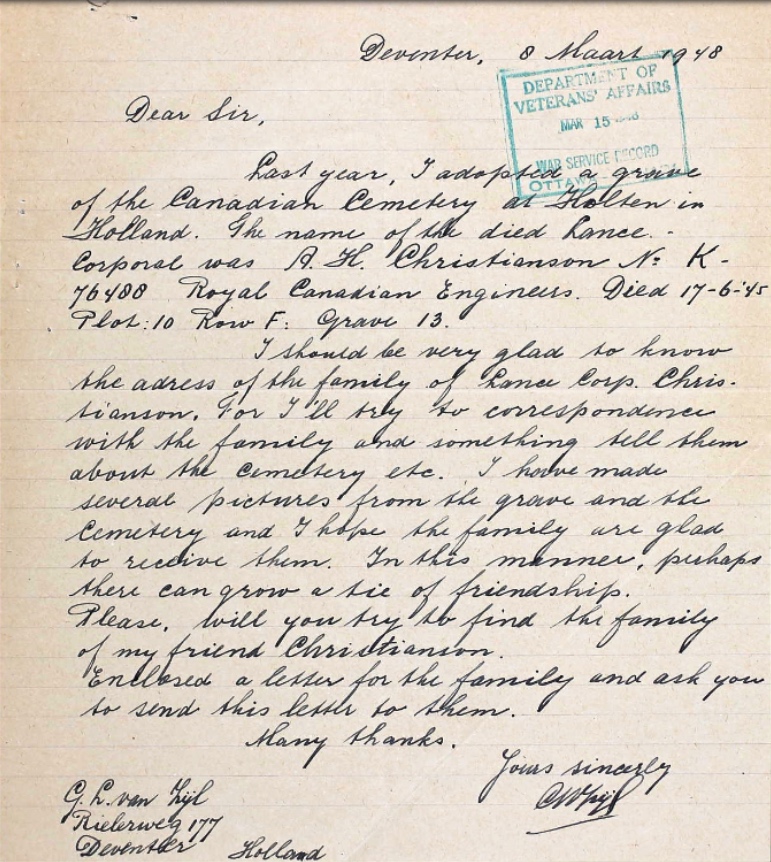 Deventer, 8 Maart 1948
DEPARTMENT OF
VETERANS' AFFAIRS
MAR 15
WAR SERVICE RECORD
OTTAWA
Dear Sir,
Last year, I adopted a grave
of the Canadian Cemetery at Holten in
Holland. The name of the died Lance.-
Corporal was A. H. Christianson No: K-
76488 Royal Canadian Engineers. Died 17-6-'45
Plot: 10 Row F: Grave 13.
I should be very glad to know
the adress of the family of Lance Corp. Chris-
tianson. For I'll try to correspondence
with the family and something tell them
about the cemetery etc. I have made
several pictures from the grave and the
Cemetery and I hope the family are glad
to receive them. In this manner, perhaps
there can grow a tie of friendship.
Please, will you try to find the family
of my friend Christianson.
Enclosed a letter for the family and ask you
to send this letter to them.
Many thanks.
Yours sincerly
G. L. van Zijl
Rielerweg 177
Deventer Holland